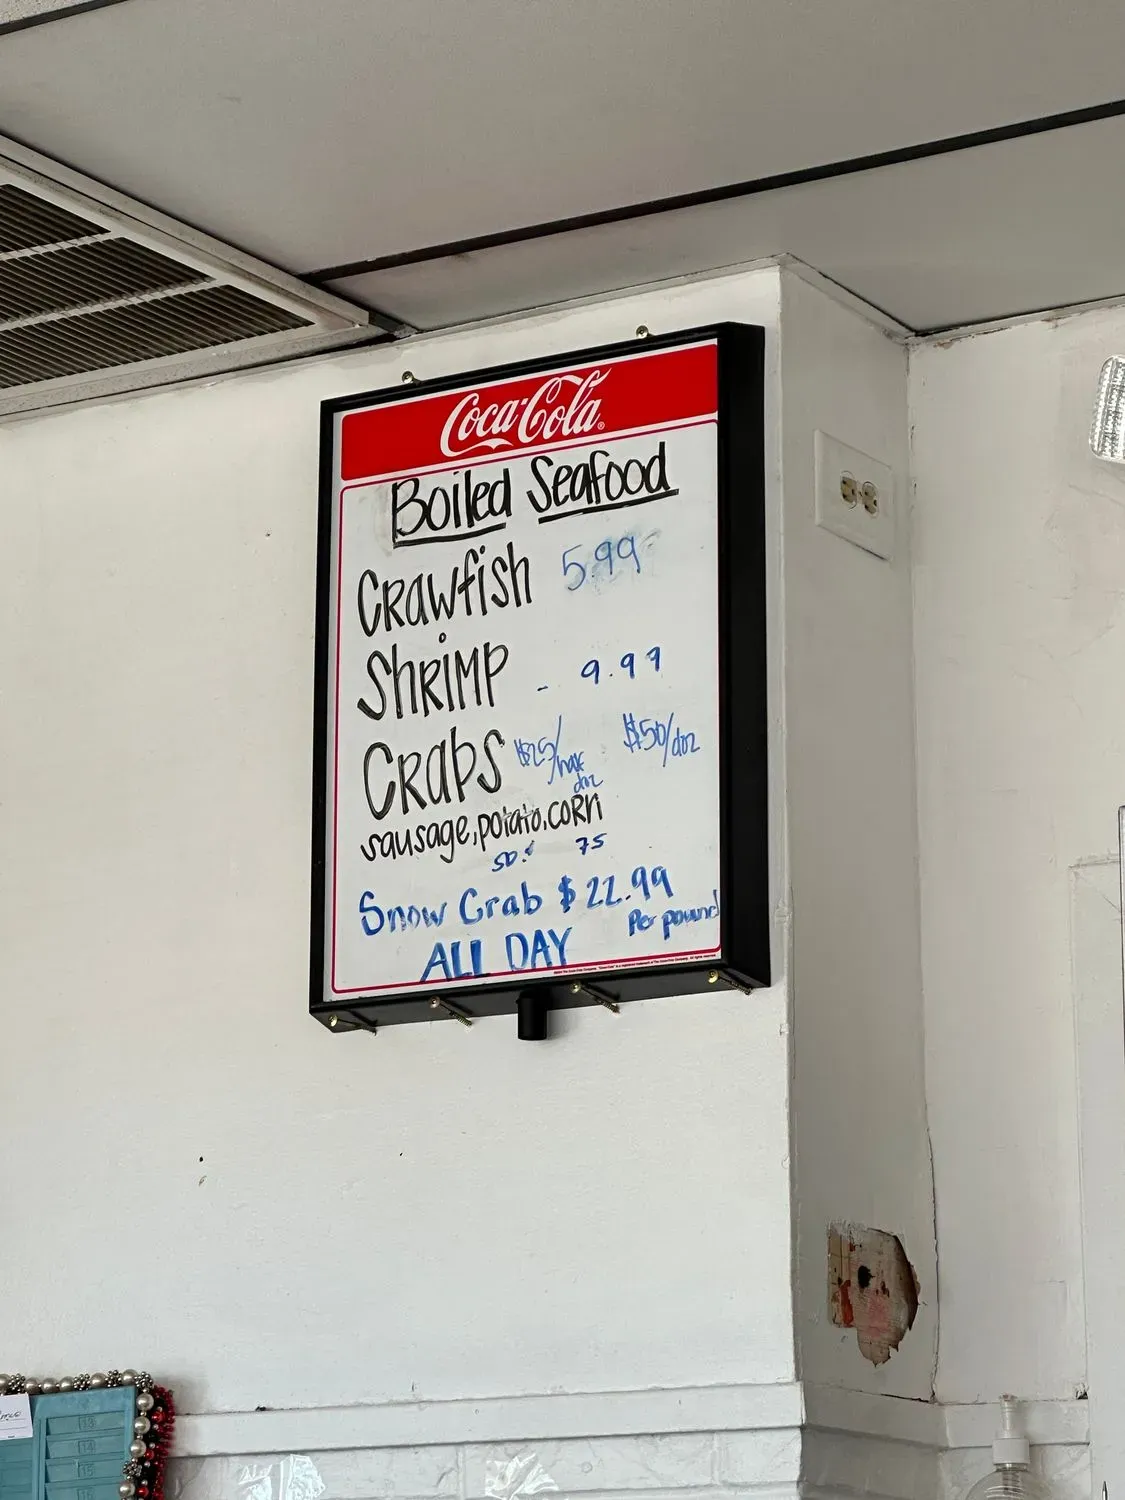 Coca-Cola
Boiled Seafood
Crawfish 5.99
Shrimp - 9.99
Crabs $25/half doz $50/doz
sausage, potato, corn
50.¢ 75
Snow Crab $22.99
Per pound
ALL DAY
13
14
15
16